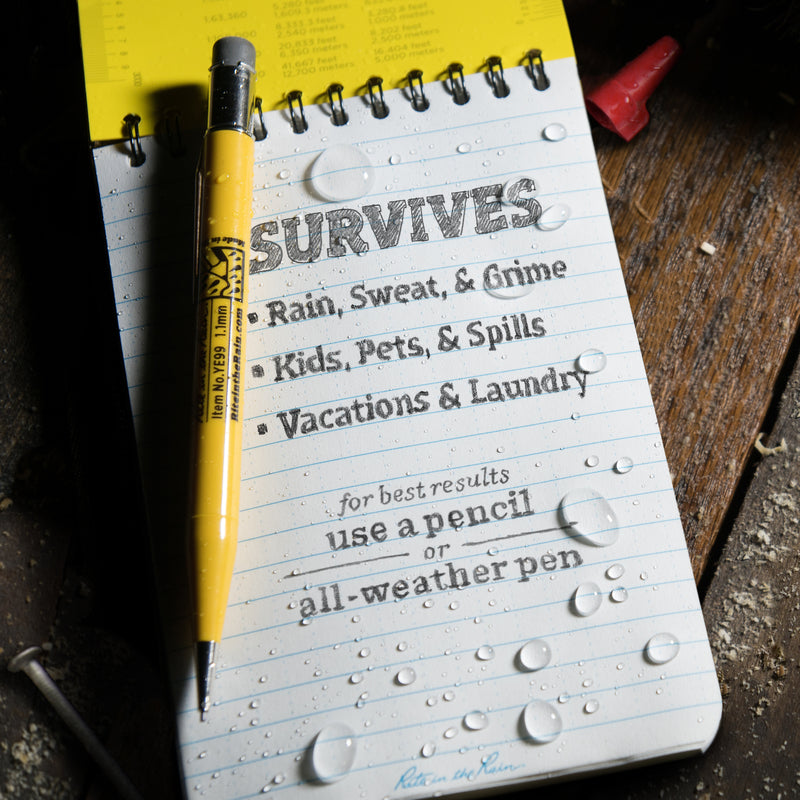 5,280 feet
1:63,360
1,609.3 meters
8,333.3 feet
2,540 meters
20,833 feet
6,350 meters
41,667 feet
12,700 meters
5,280.8 feet
1,000 meters
8,202 feet
2,500 meters
16,404 feet
5,000 meters
SURVIVES
• Rain, Sweat, & Grime
• Kids, Pets, & Spills
• Vacations & Laundry
for best results
use a pencil
or
all-weather pen
Rite in the Rain
Made in
Item No. YE99 1.1mm
RiteintheRain.com